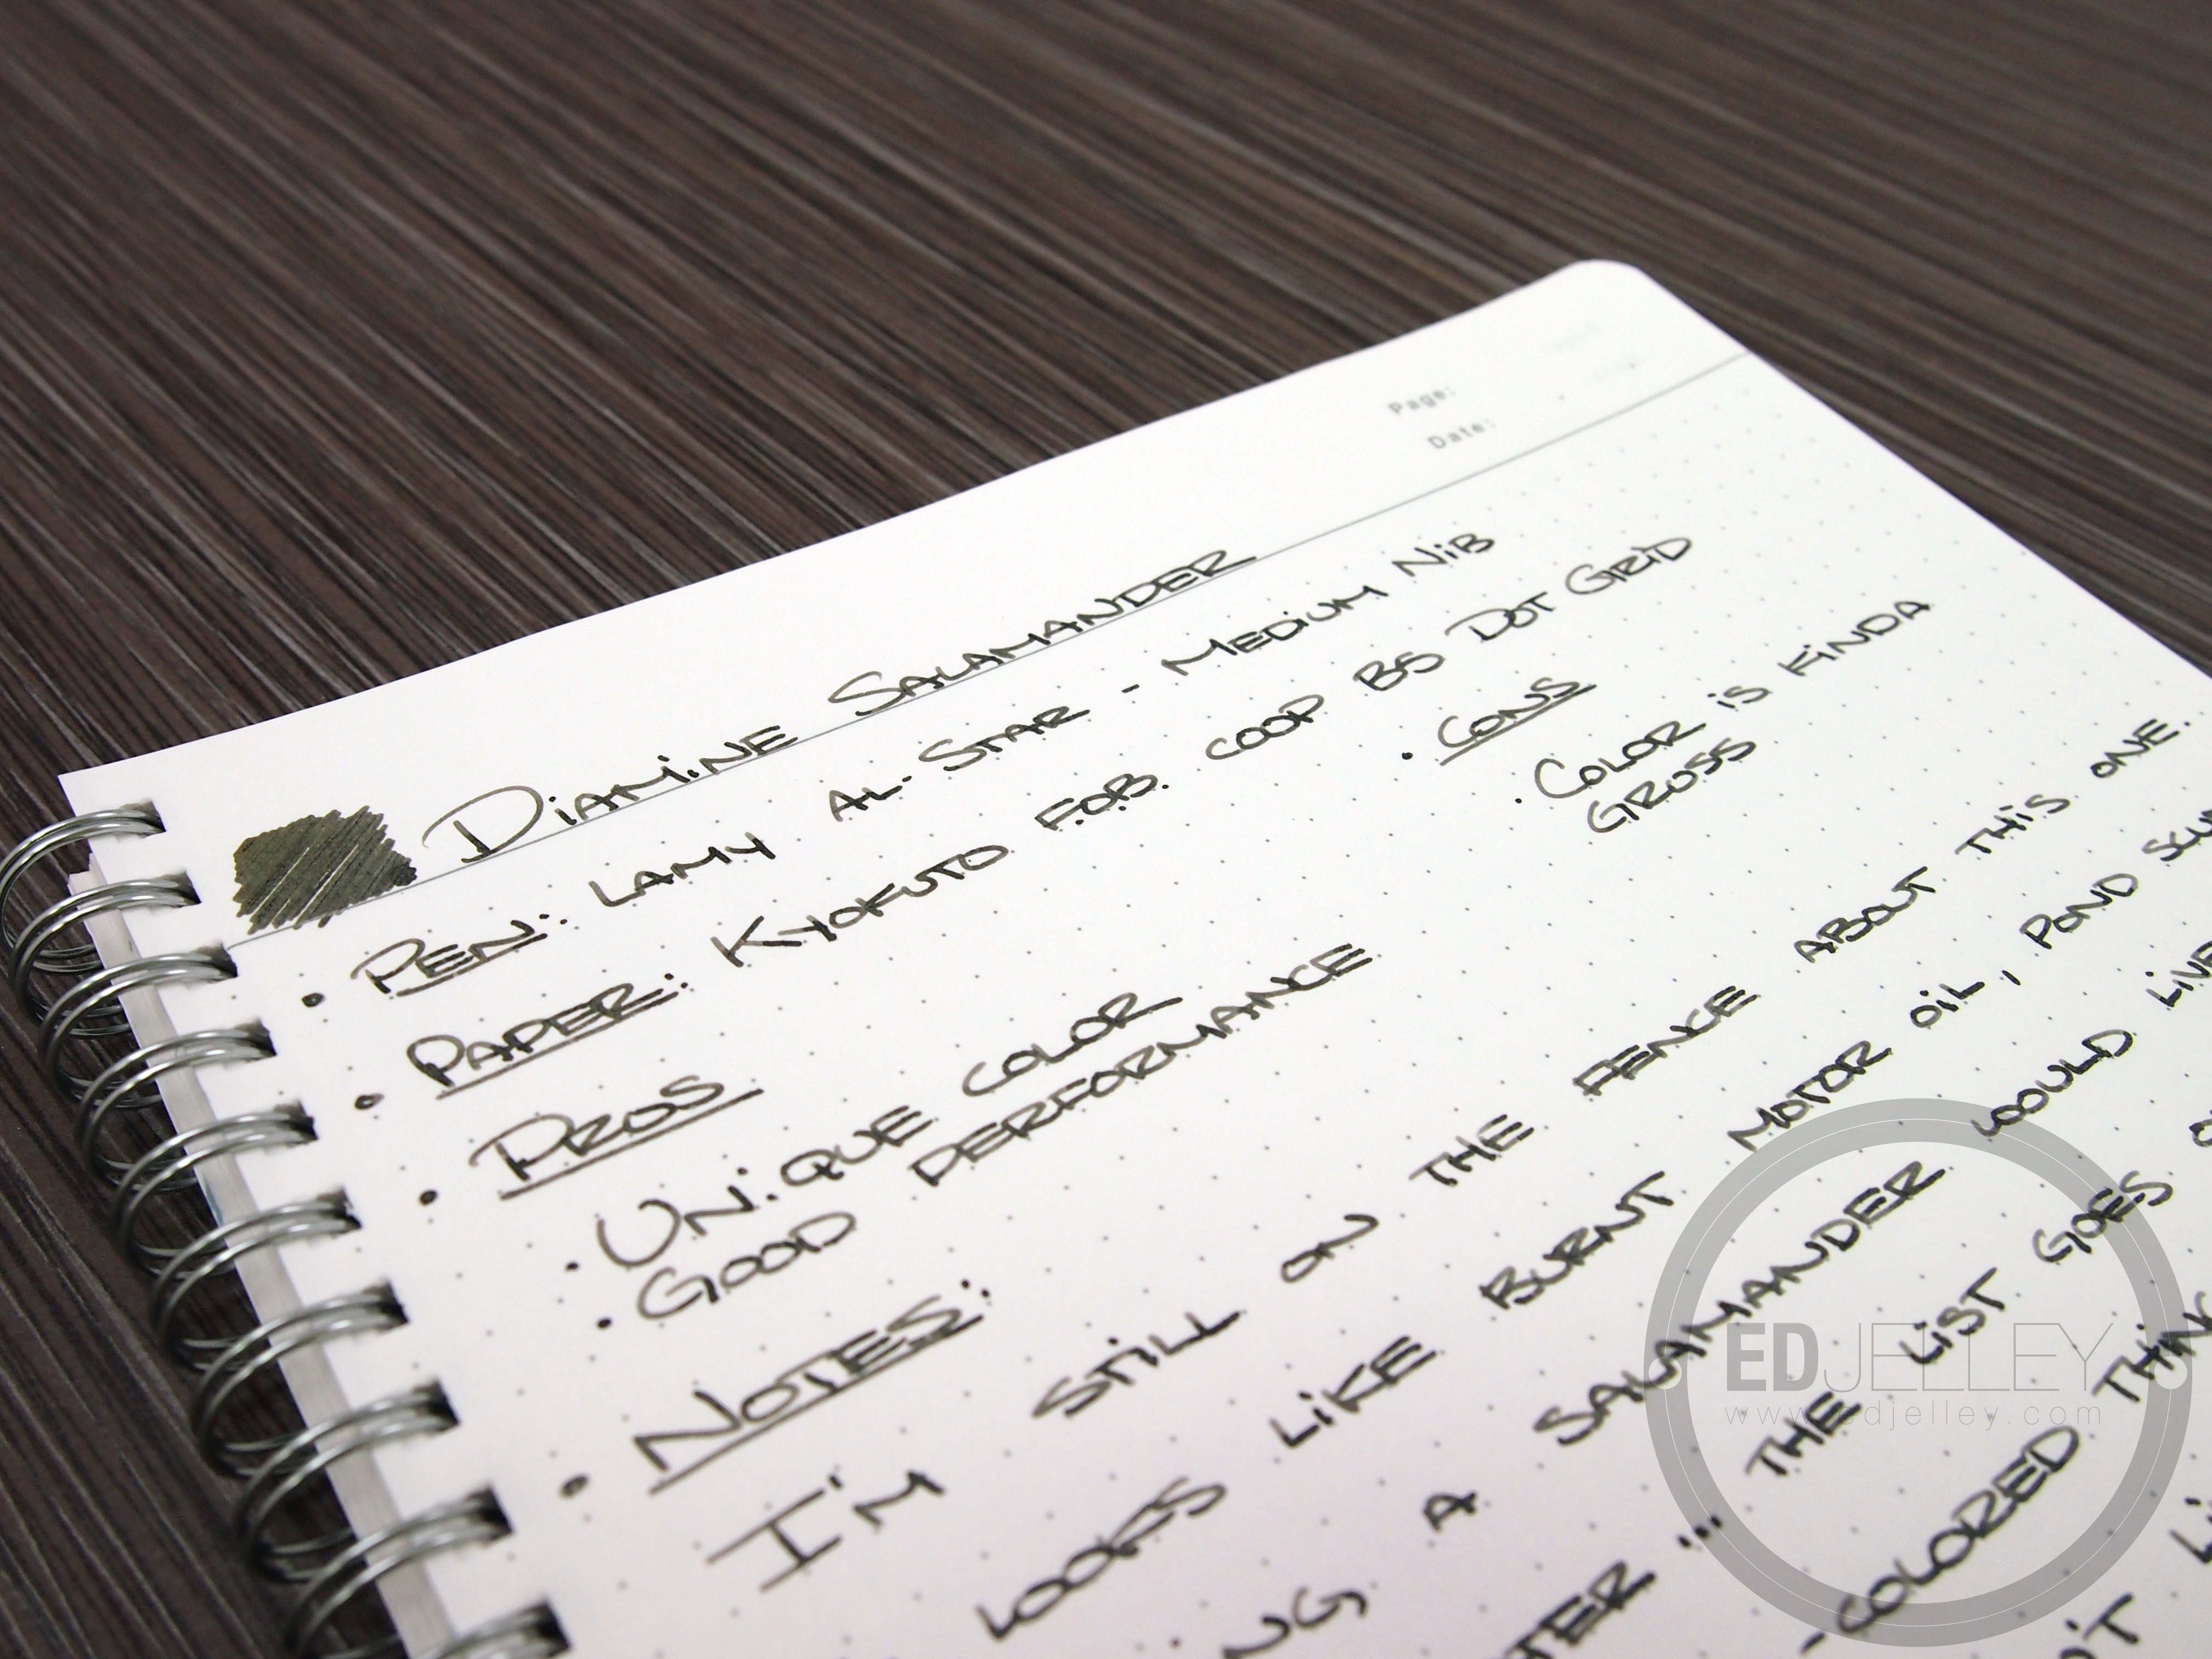 Page:
Date:
DIAMINE SALAMANDER
• PEN: LAMY AL-STAR - MEDIUM NIB
• PAPER: KYOKUTO F.O.B. COOP B5 DOT GRID
• PROS
• CONS
• UNIQUE COLOR
• COLOR IS KINDA
GROSS
• GOOD PERFORMANCE
• NOTES:
I'M STILL ON THE FENCE ABOUT THIS ONE.
LOOKS LIKE BURNT MOTOR OIL, POND
A SALAMANDER WOULD
... THE LIST GOES
-COLORED
EDJELLEY
www.edjelley.com